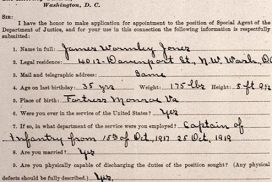 Washington, D. C.
SIR:
I have the honor to make application for appointment to the position of Special Agent of the
Department of Justice, and for your use in this connection the following information is respectfully
submitted:
1. Name in full: James Wormley Jones
2. Legal residence: 4012-Davenport St, N.W. Wash, D.C.
3. Mail and telegraphic address: Same
4. Age on last birthday: 35 yrs Weight: 175 lbs Height: 5 ft 9½
5. Place of birth: Fortress Monroe Va
6. Were you ever in the service of the United States? Yes
7. If so, in what department of the service were you employed? Captain of
Infantry from 15th of Oct, 1917 25 Oct, 1919
8. Are you married? Yes
9. Are you physically capable of discharging the duties of the position sought? (Any physical
defects should be fully described). Yes